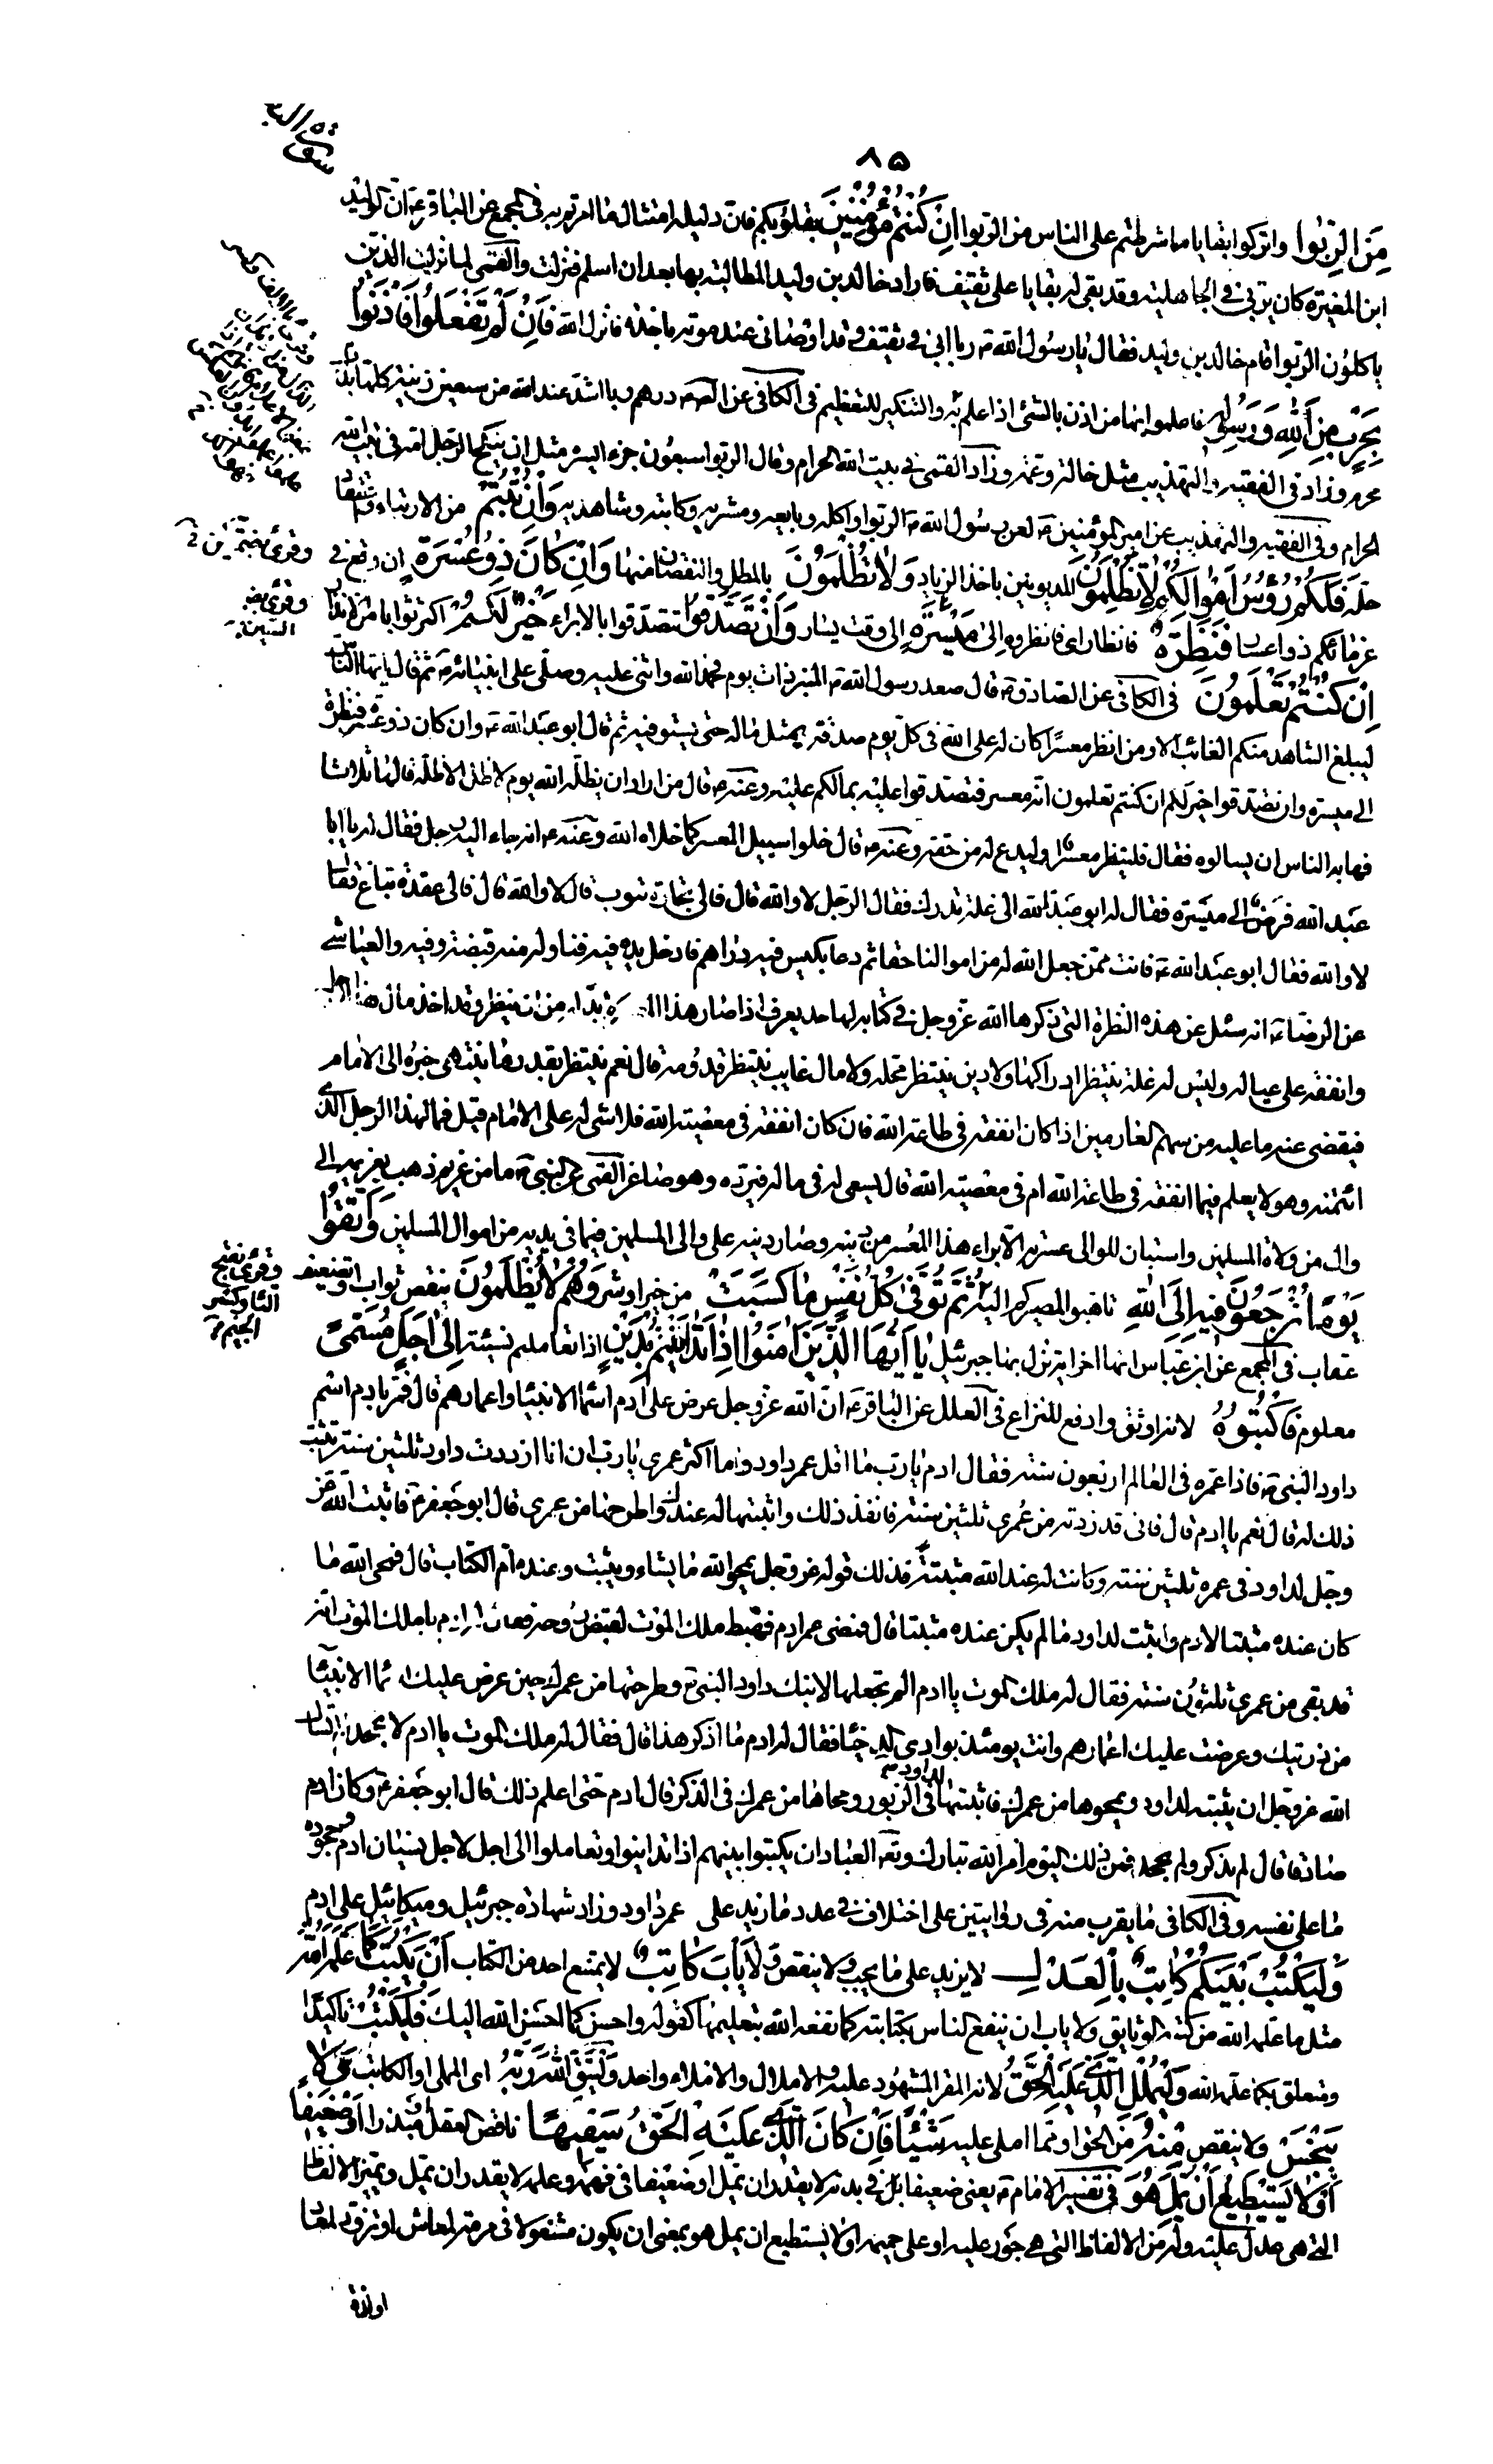 ٨٥
مِنَ الرِّبٰوا واتركوا بقايا ما شرطتم على الناس من الربوا اِنْ كُنْتُمْ مُؤْمِنِينَ بقلوبكم فان دليله امتثال ما امرتم به في المجمع عن الباقر ع ان الوليد
ابن المغيرة كان يربي في الجاهلية وقد بقي له بقايا على ثقيف فاراد خالد بن وليد المطالبة بها بعد ان اسلم فنزلت والقمي لما نزلت الذين
ياكلون الربوا قام خالد بن وليد فقال يا رسول الله ص ربا ابي في ثقيف وقد اوصاني عند موته باخذه فانزل الله فَاِنْ لَمْ تَفْعَلُوا فَاْذَنُوا
بِحَرْبٍ مِنَ اللّٰهِ وَرَسُولِهِ فاعلموا بها من اذن بالشئ اذا علم به والتنكير للتعظيم في الكافي عن الص ع درهم ربا اشد عند الله من سبعين زنية كلها بذات
محرم وزاد في الفقيه والتهذيب مثل خالة وعمة وزاد القمي في بيت الله الحرام وقال الربوا سبعون جزء ايسره مثل ان ينكح الرجل امه في بيت الله
الحرام وفي الفقيه والتهذيب عن امير المؤمنين ع لعن رسول الله ص الربوا واكله وبايعه ومشتريه وكاتبه وشاهديه وَاِنْ تُبْتُمْ من الارتباء واعتقاد
حله فَلَكُمْ رُؤُسُ اَمْوَالِكُمْ لاٰ تَظْلِمُونَ المديونين باخذ الزيادة وَلاٰ تُظْلَمُونَ بالمطل والنقصان منها وَاِنْ كَانَ ذُو عُسْرَةٍ ان وقع في
غرمائكم ذو اعسار فَنَظِرَةٌ فانظار اي فانظروه اِلىٰ مَيْسَرَةٍ الى وقت يسار وَاَنْ تَصَدَّقُوا تتصدقوا بالابراء خَيْرٌ لَكُمْ اكثر ثوابا من الانظار
اِنْ كُنْتُمْ تَعْلَمُونَ في الكافي عن الصادق ع قال صعد رسول الله ص المنبر ذات يوم فحمد الله واثنى عليه وصلى على انبيائه ثم قال ايها الناس
ليبلغ الشاهد منكم الغائب الا ومن انظر معسرا كان له على الله في كل يوم صدقة بمثل ماله حتى يستوفيه ثم قال ابو عبد الله ع وان كان ذو عسرة فنظرة
الى ميسرة وان تصدقوا خير لكم ان كنتم تعلمون انه معسر فتصدقوا عليه بمالكم عليه وعنه ع قال من اراد ان يظله الله يوم لا ظل الا ظله قالها ثلاثا
فهابه الناس ان يسالوه فقال فلينظر معسرا وليدع له من حقه وعنه ع قال خلوا سبيل المعسر كما خلاه الله وعنه ع انه جاء اليه رجل فقال له يا ابا
عبد الله قرض الى ميسرة فقال له ابو عبد الله الى غلة تدرك فقال الرجل لا والله قال فالى تجارة تئوب قال لا والله قال فالى عقدة تباع فقال
لا والله فقال ابو عبد الله ع فانت ممن جعل الله له من اموالنا حقا ثم دعا بكيس فيه دراهم فادخل يده فيه فناوله منه قبضة وفيه والعياشي
عن الرضا ع انه سئل عن هذه النظرة التي ذكرها الله عز وجل في كتابه لها حد يعرف اذا صار هذا المعسر لا بد له من ان ينظر وقد اخذ مال هذا الرجل
وانفقه على عياله وليس له غلة ينتظر ادراكها ولا دين ينتظر محله ولا مال غايب ينتظر قدومه قال نعم ينتظر بقدر ما ينتهي خبره الى الامام
فيقضي عنه ما عليه من سهم الغارمين اذا كان انفقه في طاعة الله فان كان انفقه في معصية الله فلا شئ له على الامام قيل فما لهذا الرجل الذي
ائتمنه وهو لا يعلم فيما انفقه في طاعة الله ام في معصية الله قال يسعى له في ماله فيرده وهو صاغر القمي عن النبي ص ما من غريم ذهب بغريمه الى
وال من ولاة المسلمين واستبان للوالي عسرته الا برء هذا المعسر من دينه وصار دينه على والي المسلمين فيما في يديه من اموال المسلمين وَاتَّقُوا
يَوْمًا تُرْجَعُونَ فِيهِ اِلَى اللّٰهِ تاهبوا لمصيركم اليه ثُمَّ تُوَفّىٰ كُلُّ نَفْسٍ مٰا كَسَبَتْ من خير او شر وَهُمْ لاٰ يُظْلَمُونَ بنقص ثواب او تضعيف
عقاب في المجمع عن ابن عباس انها اخر اية نزل بها جبرئيل يٰا اَيُّهَا الَّذِينَ اٰمَنُوا اِذٰا تَدٰايَنْتُمْ بِدَيْنٍ اذا تعاملتم نسيئة اِلىٰ اَجَلٍ مُسَمًّى
معلوم فَاكْتُبُوهُ لانه اوثق وادفع للنزاع في العلل عن الباقر ع ان الله عز وجل عرض على ادم اسماء الانبياء واعمارهم قال فمر بادم اسم
داود النبي ع فاذا عمره في العالم اربعون سنة فقال ادم يا رب ما اقل عمر داود وما اكثر عمري يا رب ان انا ازددت داود ثلثين سنة تثبت
ذلك له قال نعم يا ادم قال فاني قد زدته من عمري ثلثين سنة فانفذ ذلك واثبتها له عندك واطرحها من عمري قال ابو جعفر ع فاثبت الله عز
وجل لداود في عمره ثلثين سنة وكانت له عند الله مثبتة فذلك قوله عز وجل يمحو الله ما يشاء ويثبت وعنده ام الكتاب قال فمحى الله ما
كان عنده مثبتا لادم واثبت لداود ما لم يكن عنده مثبتا قال فمضى عمر ادم فهبط ملك الموت لقبض روحه فقال له ادم يا ملك الموت انه
قد بقي من عمري ثلثون سنة فقال له ملك الموت يا ادم الم تجعلها لابنك داود النبي ع وطرحتها من عمرك حين عرض عليك اسماء الانبياء
من ذريتك وعرضت عليك اعمارهم وانت يومئذ بوادي الدخيا فقال له ادم ما اذكر هذا قال فقال له ملك الموت يا ادم لا تجحد الم تسال
الله عز وجل ان يثبته لداود ويمحوها من عمرك فاثبتها لداود في الزبور ومحاها من عمرك في الذكر قال ادم حتى اعلم ذلك قال ابو جعفر ع وكان ادم
صادقا قال لم يذكر ولم يجحد فمن ذلك اليوم امر الله تبارك وتع العباد ان يكتبوا بينهم اذا تداينوا وتعاملوا الى اجل لاجل نسيان ادم وجحوده
ما على نفسه وفي الكافي ما يقرب منه في روايتين على اختلاف في عدد ما زيد على عمر داود وزاد شهادة جبرئيل وميكائيل على ادم
وَلْيَكْتُبْ بَيْنَكُمْ كٰاتِبٌ بِالْعَدْلِ لا يزيد على ما يجب ولا ينقص وَلاٰ يَاْبَ كٰاتِبٌ لا يمتنع احد من الكتاب اَنْ يَكْتُبَ كَمٰا عَلَّمَهُ اللّٰهُ
مثل ما علمه الله من كتبه الوثايق ولا ياب ان ينفع الناس بكتابته كما نفعه الله بتعليمها كقوله واحسن كما احسن الله اليك فَلْيَكْتُبْ تاكيد
ومتعلق بكما علمه الله وَلْيُمْلِلِ الَّذِي عَلَيْهِ الْحَقُّ لانه المقر المشهود عليه والاملال والاملاء واحد وَلْيَتَّقِ اللّٰهَ رَبَّهُ اي المملي او الكاتب وَلاٰ
يَبْخَسْ ولا ينقص مِنْهُ من الحق او مما املى عليه شَيْئًا فَاِنْ كٰانَ الَّذِي عَلَيْهِ الْحَقُّ سَفِيهًا ناقص العقل مبذرا اَوْ ضَعِيفًا
اَوْ لاٰ يَسْتَطِيعُ اَنْ يُمِلَّ هُوَ في تفسير الامام ع يعني ضعيفا في بدنه لا يقدر ان يمل او ضعيفا في فهمه وعلمه لا يقدر ان يمل ويميز الالفاظ
التي هي عدل عليه وله من الالفاظ التي هي جور عليه او على حميمه او لا يستطيع ان يمل هو بمعنى ان يكون مشغولا في مرمة لمعاش او تزود لمعاد
او لذة
وقرئ بضمتين
وقرئ بضم السين
وقرئ بفتح
التاء وكسر
الجيم